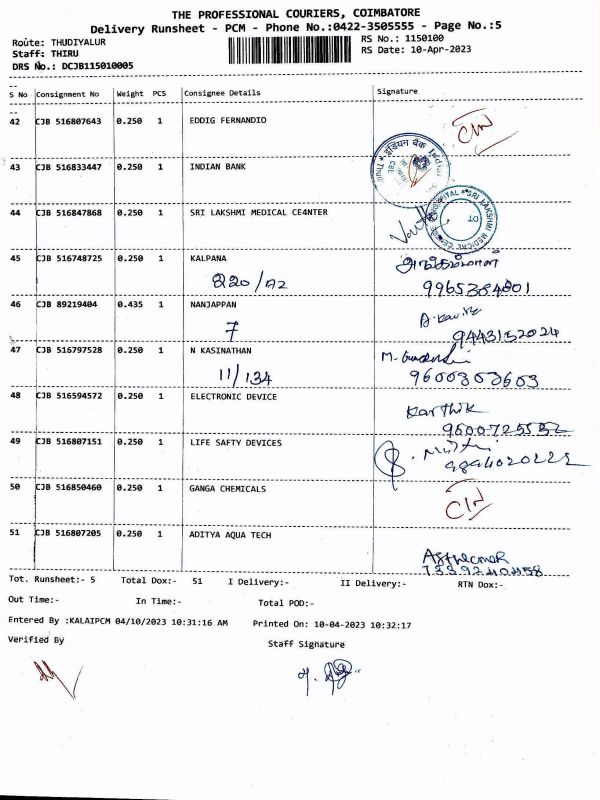 THE PROFESSIONAL COURIERS, COIMBATORE
Delivery Runsheet - PCM - Phone No.:0422-3505555 - Page No.:5
Route: THUDIYALUR RS No.: 1150100
Staff: THIRU RS Date: 10-Apr-2023
DRS No.: DCJB115010005
S No Consignment No Weight PCS Consignee Details Signature
42 CJB 516807643 0.250 1 EDDIG FERNANDIO
43 CJB 516833447 0.250 1 INDIAN BANK
इंडियन बैंक
44 CJB 516847868 0.250 1 SRI LAKSHMI MEDICAL CE4NTER
SRI LAKSHMI MEDICAL CENTRE HOSPITAL
45 CJB 516748725 0.250 1 KALPANA
220/A2 9965384801
46 CJB 89219404 0.435 1 NANJAPPAN
7 9443152024
47 CJB 516797528 0.250 1 N KASINATHAN
11/134 9600303603
48 CJB 516594572 0.250 1 ELECTRONIC DEVICE
Karthik
9600725532
49 CJB 516807151 0.250 1 LIFE SAFTY DEVICES
9894020222
50 CJB 516850460 0.250 1 GANGA CHEMICALS
51 CJB 516807205 0.250 1 ADITYA AQUA TECH
Tot. Runsheet:- 5 Total Dox:- 51 I Delivery:- II Delivery:- RTN Dox:-
Out Time:- In Time:- Total POD:-
Entered By :KALAIPCM 04/10/2023 10:31:16 AM Printed On: 10-04-2023 10:32:17
Verified By Staff Signature